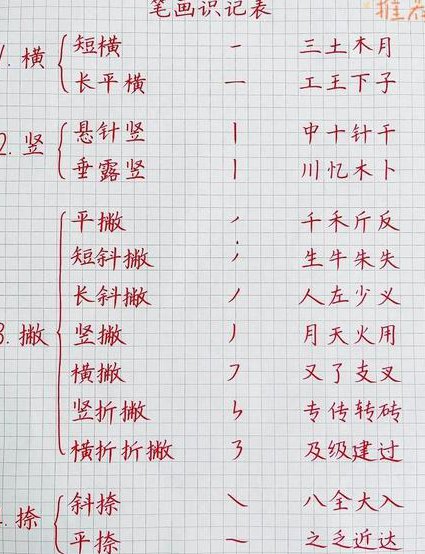 笔画识记表
推荐
1. 横
短横 一 三土木月
长平横 一 工王下子
2. 竖
悬针竖 丨 中十针干
垂露竖 丨 川忆木卜
3. 撇
平撇 ノ 千禾斤反
短斜撇 ノ 生牛朱失
长斜撇 ノ 人左少义
竖撇 丿 月天火用
横撇 フ 又了支叉
竖折撇 ㄣ 专传转砖
横折折撇 ㄋ 及级建过
捺
斜捺 ㇏ 八全大入
平捺 ㇏ 之乏近达